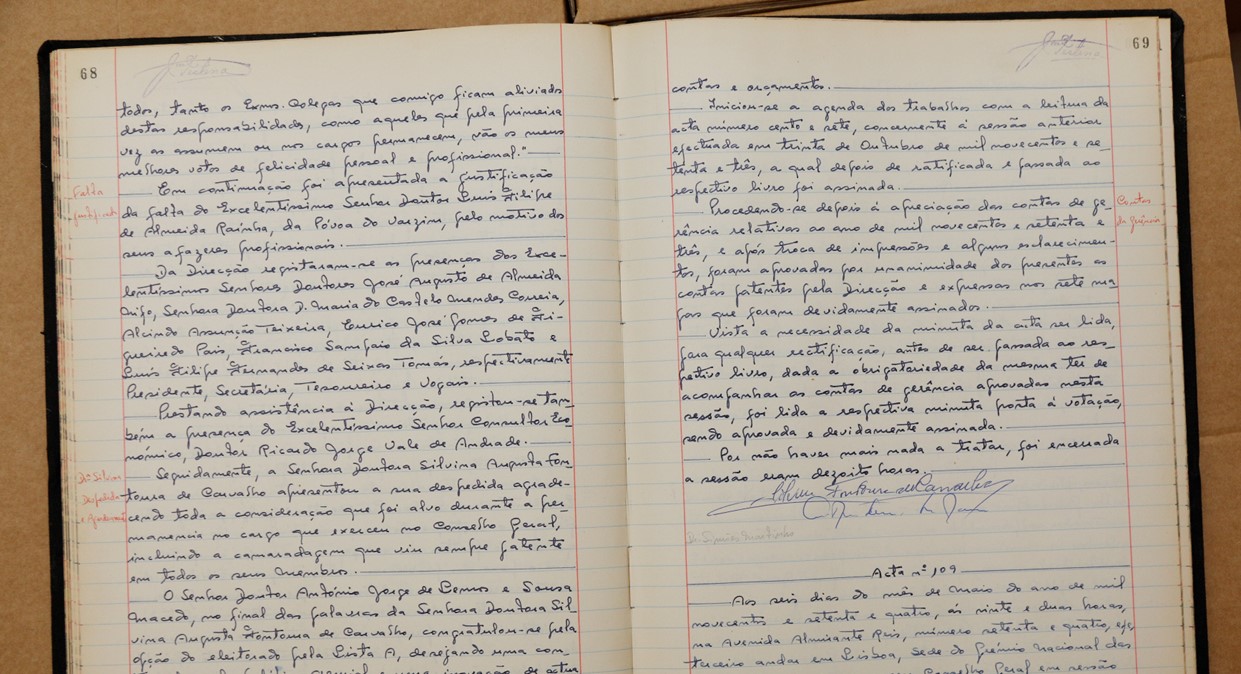 68
todos, tanto os Exmos. Colegas que comigo ficam aliviados
destas responsabilidades, como aqueles que pela primeira
vez as assumem ou nos cargos permanecem, vão os meus
melhores votos de felicidade pessoal e profissional."
Falta
justificada
Em continuação foi apresentada a justificação
da falta do Excelentíssimo Senhor Doutor Luís Filipe
de Almeida Rainha, da Póvoa do Varzim, pelo motivo dos
seus afazeres profissionais.
Da Direcção registaram-se as presenças dos Exce-
lentíssimos Senhores Doutores José Augusto de Almeida
Senhora Doutora D. Maria do Castelo Mendes Correia,
Alcindo Assunção Teixeira, Eurico José Gomes de Fi-
gueiredo Pais, Francisco Sampaio da Silva Lobato e
Luís Filipe Fernandes de Seixas Tomás, respectivamente
Presidente, Secretária, Tesoureiro e Vogais.
Prestando assistência à Direcção, registou-se tam-
bém a presença do Excelentíssimo Senhor Consultor Eco-
nómico, Doutor Ricardo Jorge Vale de Andrade.
Drª Silvina
Despedida
Seguidamente, a Senhora Doutora Silvina Augusta Fon-
toura de Carvalho apresentou a sua despedida agrade-
cendo toda a consideração que foi alvo durante a per-
manencia no cargo que exerceu no Conselho Geral,
incluindo a camaradagem que viu sempre patente
em todos os seus membros.
O Senhor Doutor António Jorge de Lemos e Sousa
Macedo, no final das palavras da Senhora Doutora Sil-
vina Augusta Fontoura de Carvalho, congratulou-se pela
opção do eleitorado pela Lista A, desejando uma con-
69
contas e orçamentos.
Iniciou-se a agenda dos trabalhos com a leitura da
acta número cento e sete, concernente à sessão anterior
efectuada em trinta de Outubro de mil novecentos e se-
tenta e três, a qual depois de ratificada e passada ao
respectivo livro foi assinada.
Contas
de gerência
Procedendo-se depois à apreciação das contas de ge-
rência relativas ao ano de mil novecentos e setenta e
três, e após troca de impressões e alguns esclarecimen-
tos, foram aprovadas por unanimidade dos presentes as
contas patentes pela Direcção e expressas nos sete ma-
pas que foram devidamente assinados.
Vista a necessidade da minuta da acta ser lida,
para qualquer rectificação, antes de ser passada ao res-
pectivo livro, dada a obrigatoriedade da mesma ter de
acompanhar as contas de gerência aprovadas nesta
sessão, foi lida a respectiva minuta posta à votação,
sendo aprovada e devidamente assinada.
Por não haver mais nada a tratar, foi encerrada
a sessão eram dezoito horas.
Silvina Fontoura de Carvalho
Acta nº 109
Aos seis dias do mês de Maio do ano de mil
novecentos e setenta e quatro, às vinte e duas horas,
na Avenida Almirante Reis, número setenta e quatro,
terceiro andar em Lisboa, Sede do Grémio Nacional dos
Conselho Geral em sessão